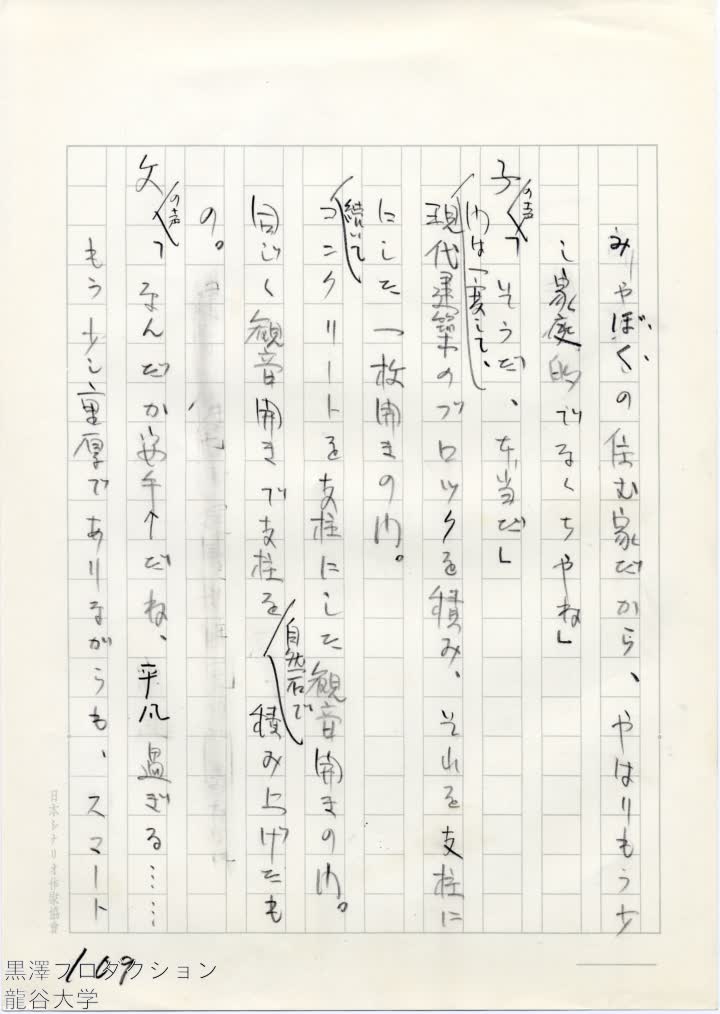 みやぼくの住む家だから、やはりもう少
し家庭的でなくちやね」
子の声「そうだ、本当だ」
門は一変して、
現代建築のブロックを積み、それを支柱に
にした一枚開きの門。
続いて
コンクリートを支柱にした観音開きの門。
同じく観音開きで支柱を自然石で積み上げたも
の。
父の声「なんだか安手だね、平凡過ぎる……
もう少し重厚でありながらも、スマート
日本シナリオ作家協會
109
黒澤プロダクション
龍谷大学